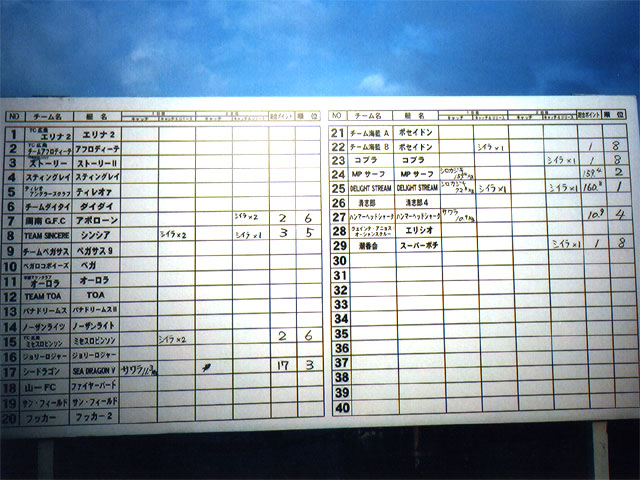 NO チーム名 艇名 キャッチ キャッチ&リリース キャッチ キャッチ&リリース 総合ポイント 順位
1 TC広島 エリナ2 エリナ2
2 TC広島 チームアフロディーテ アフロディーテ
3 ストーリー ストーリーII
4 スティングレイ スティングレイ
5 ティレオ アングラーズクラブ ティレオア
6 チームダイタイ ダイダイ
7 周南 G.F.C アポローン シイラ×2 2 6
8 TEAM SINCERE シンシア シイラ×2 シイラ×1 3 5
9 チームペガサス ペガサス9
10 ベガロコボイーズ ベガ
11 オーロラ オーロラ
12 TEAM TOA TOA
13 パナドリームス パナドリームスII
14 ノーザンライツ ノーザンライト
15 TC広島 ミセスロビンソン ミセスロビンソン シイラ×2 2 6
16 ジョリーロジャー ジョリーロジャー
17 シードラゴン SEA DRAGON V サワラ 17 3
18 山一FC ファイヤーバード
19 サン・フィールド サン・フィールド
20 フッカー フッカー2
NO チーム名 艇名 キャッチ キャッチ&リリース キャッチ キャッチ&リリース 総合ポイント 順位
21 チーム海籃 A ポセイドン
22 チーム海籃 B ポセイドン シイラ×1 1 8
23 コブラ コブラ シイラ×1 1 8
24 MP サーフ MP サーフ シロカジキ 159.4 2
25 DELIGHT STREAM DELIGHT STREAM シロカジキ シイラ×1 シイラ×1 160.8 1
26 清志郎 清志郎4
27 ハンマーヘッドシャーク ハンマーヘッドシャーク サワラ 10.9kg 10.9 4
28 ヴェインテ・アニョス オーシャンスクルー エリシオ
29 潮香会 スーパーポチ シイラ×1 1 8
30
31
32
33
34
35
36
37
38
39
40